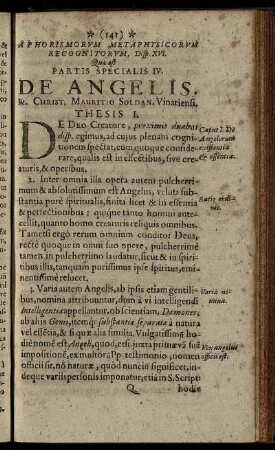 (141)
APHORISMORVM METAPHYSICORVM
RECOGNITORVM, Disp. XVI.
Quæ est
PARTIS SPECIALIS IV.
DE ANGELIS.
R. CHRIST. MAURITIO SOLDAN. Vinariensi.
THESIS I.
DE DEO Creatore, proximis duabus
disp. egimus, ad cujus plenam cogni-
tionem spectat, eum quoque conside-
rare, qualis est in effectibus, sive crea-
turis, & operibus.
Caput I. De
Angelorum
existentia
& essentia.
2. Inter omnia illa opera autem pulcherri-
mum & absolutissimum est Angelus, veluti sub-
stantia purè spiritualis, finita licet & in essentia
& perfectionibus; quique tanto homini ante-
cellit, quanto homo creaturis reliquis omnibus.
Tametsi ergò rerum omnium conditor Deus,
rectè quoque in omni suo opere, pulcherrimè
tamen in pulcherrimo laudatur, sicut & in spiri-
tibus illis, tanquam purissimus ipse spiritus, emi-
nentissimè relucet.
Ratio ordi-
nis.
3. Varia autem Angelis, ab ipsis etiam genti-
libus, nomina attribuuntur, dum à vi intelligendi
Intelligentiæ appellantur, obscientiam, Dæmones,
ab aliis Genii, itemq; substantiæ separatæ à natura
vel essentia, & si quæ alia similia. Vulgatissimũ ho-
diè nomẽ est Angeli, quod, etsi juxta primævã suã
impositionẽ, ex multorũ Pp. testimonio, nomen
officii sit, nõ naturæ, quòd nunciũ significet, in-
deque variis personis imponatur, etiã in S. Script.
Varia no-
mina.
Vox angelus
officii est.
Q
hodie